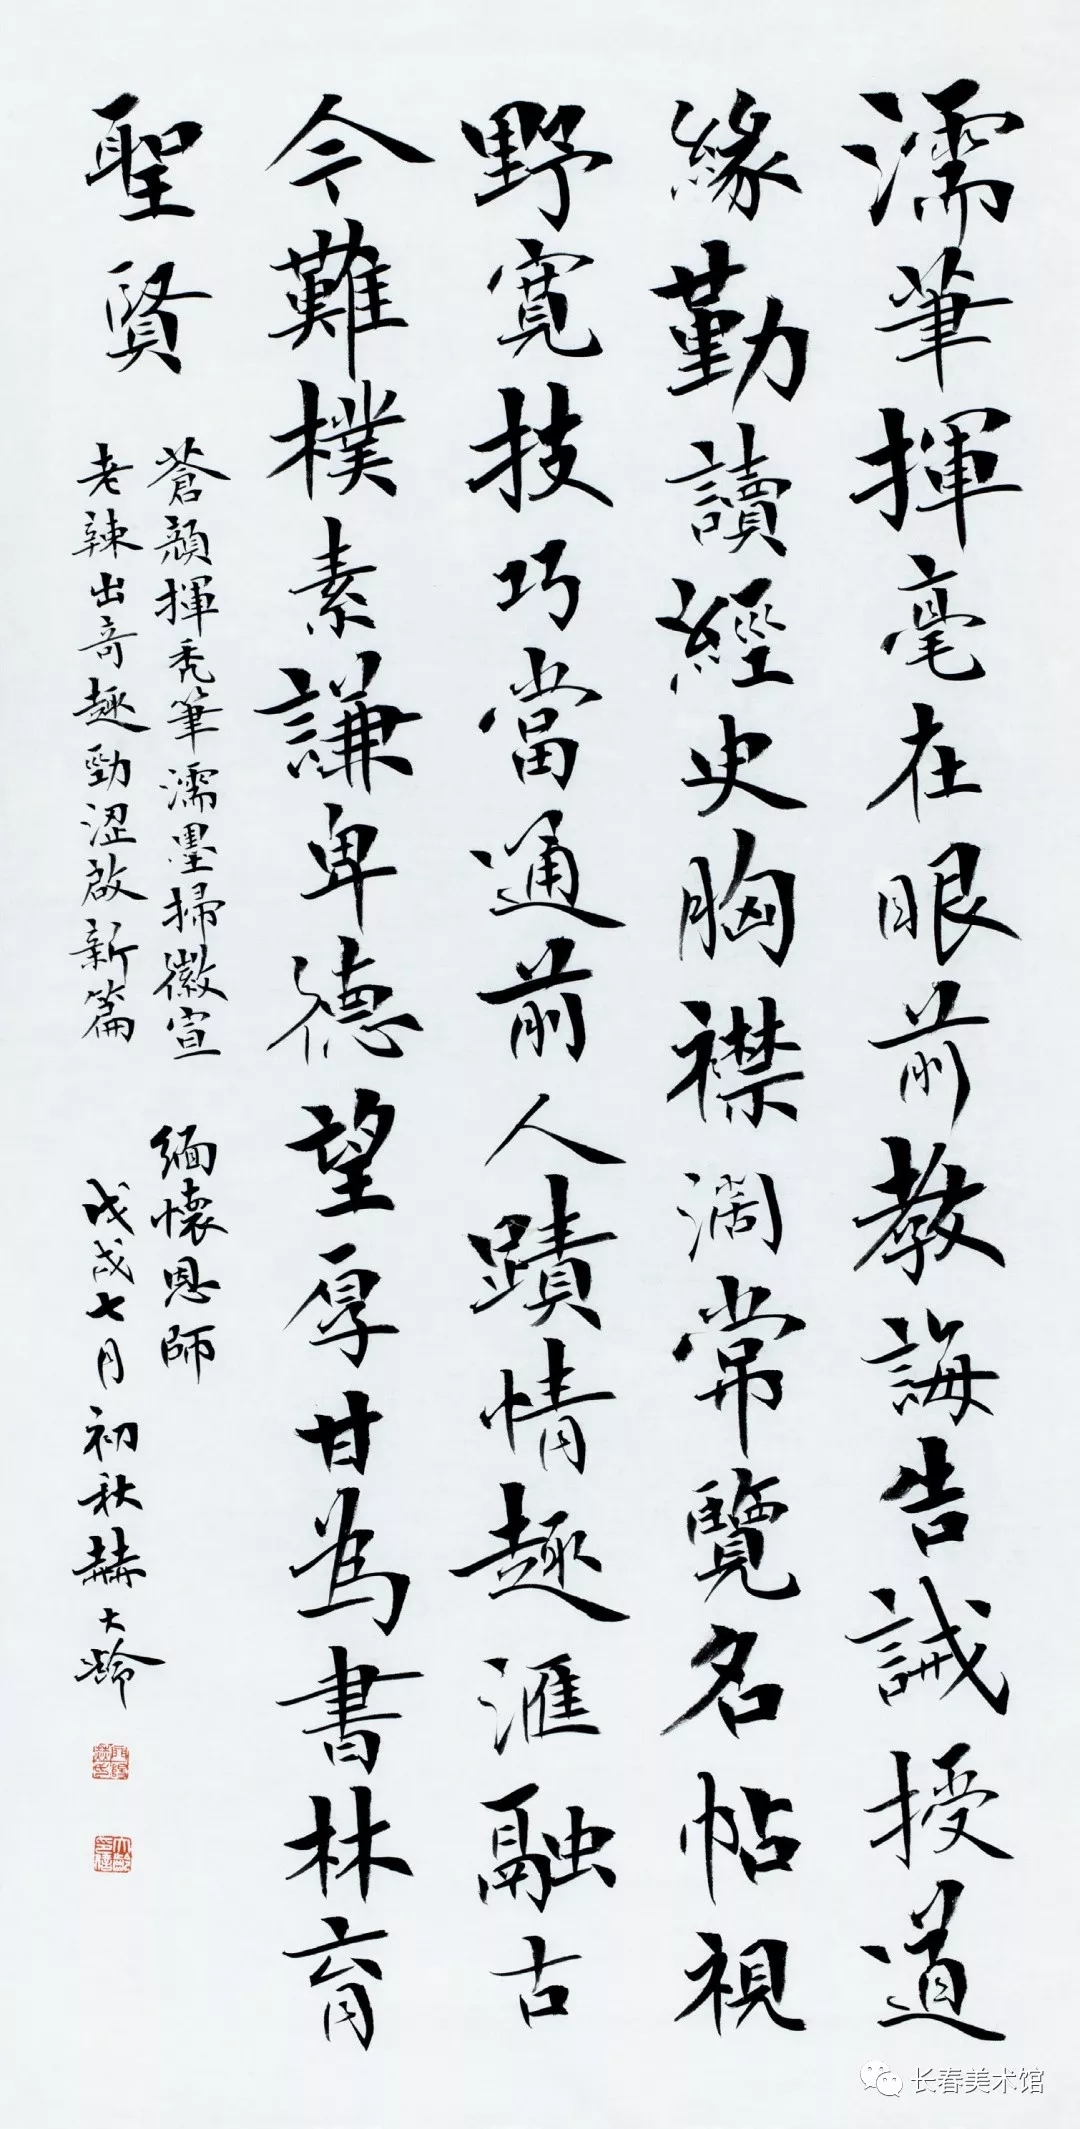 濡筆揮毫在眼前教誨告誡授道
緣勤讀經史胸襟濶常覽名帖視
野寬技巧當通前人蹟情趣滙融古
今難樸素謙卑德望厚甘為書林育
聖賢
蒼顏揮禿筆濡墨掃徽宣
老辣出奇趣勁涩啟新篇
緬懷恩師
戊戌七月初秋赫大齡
长春美术馆